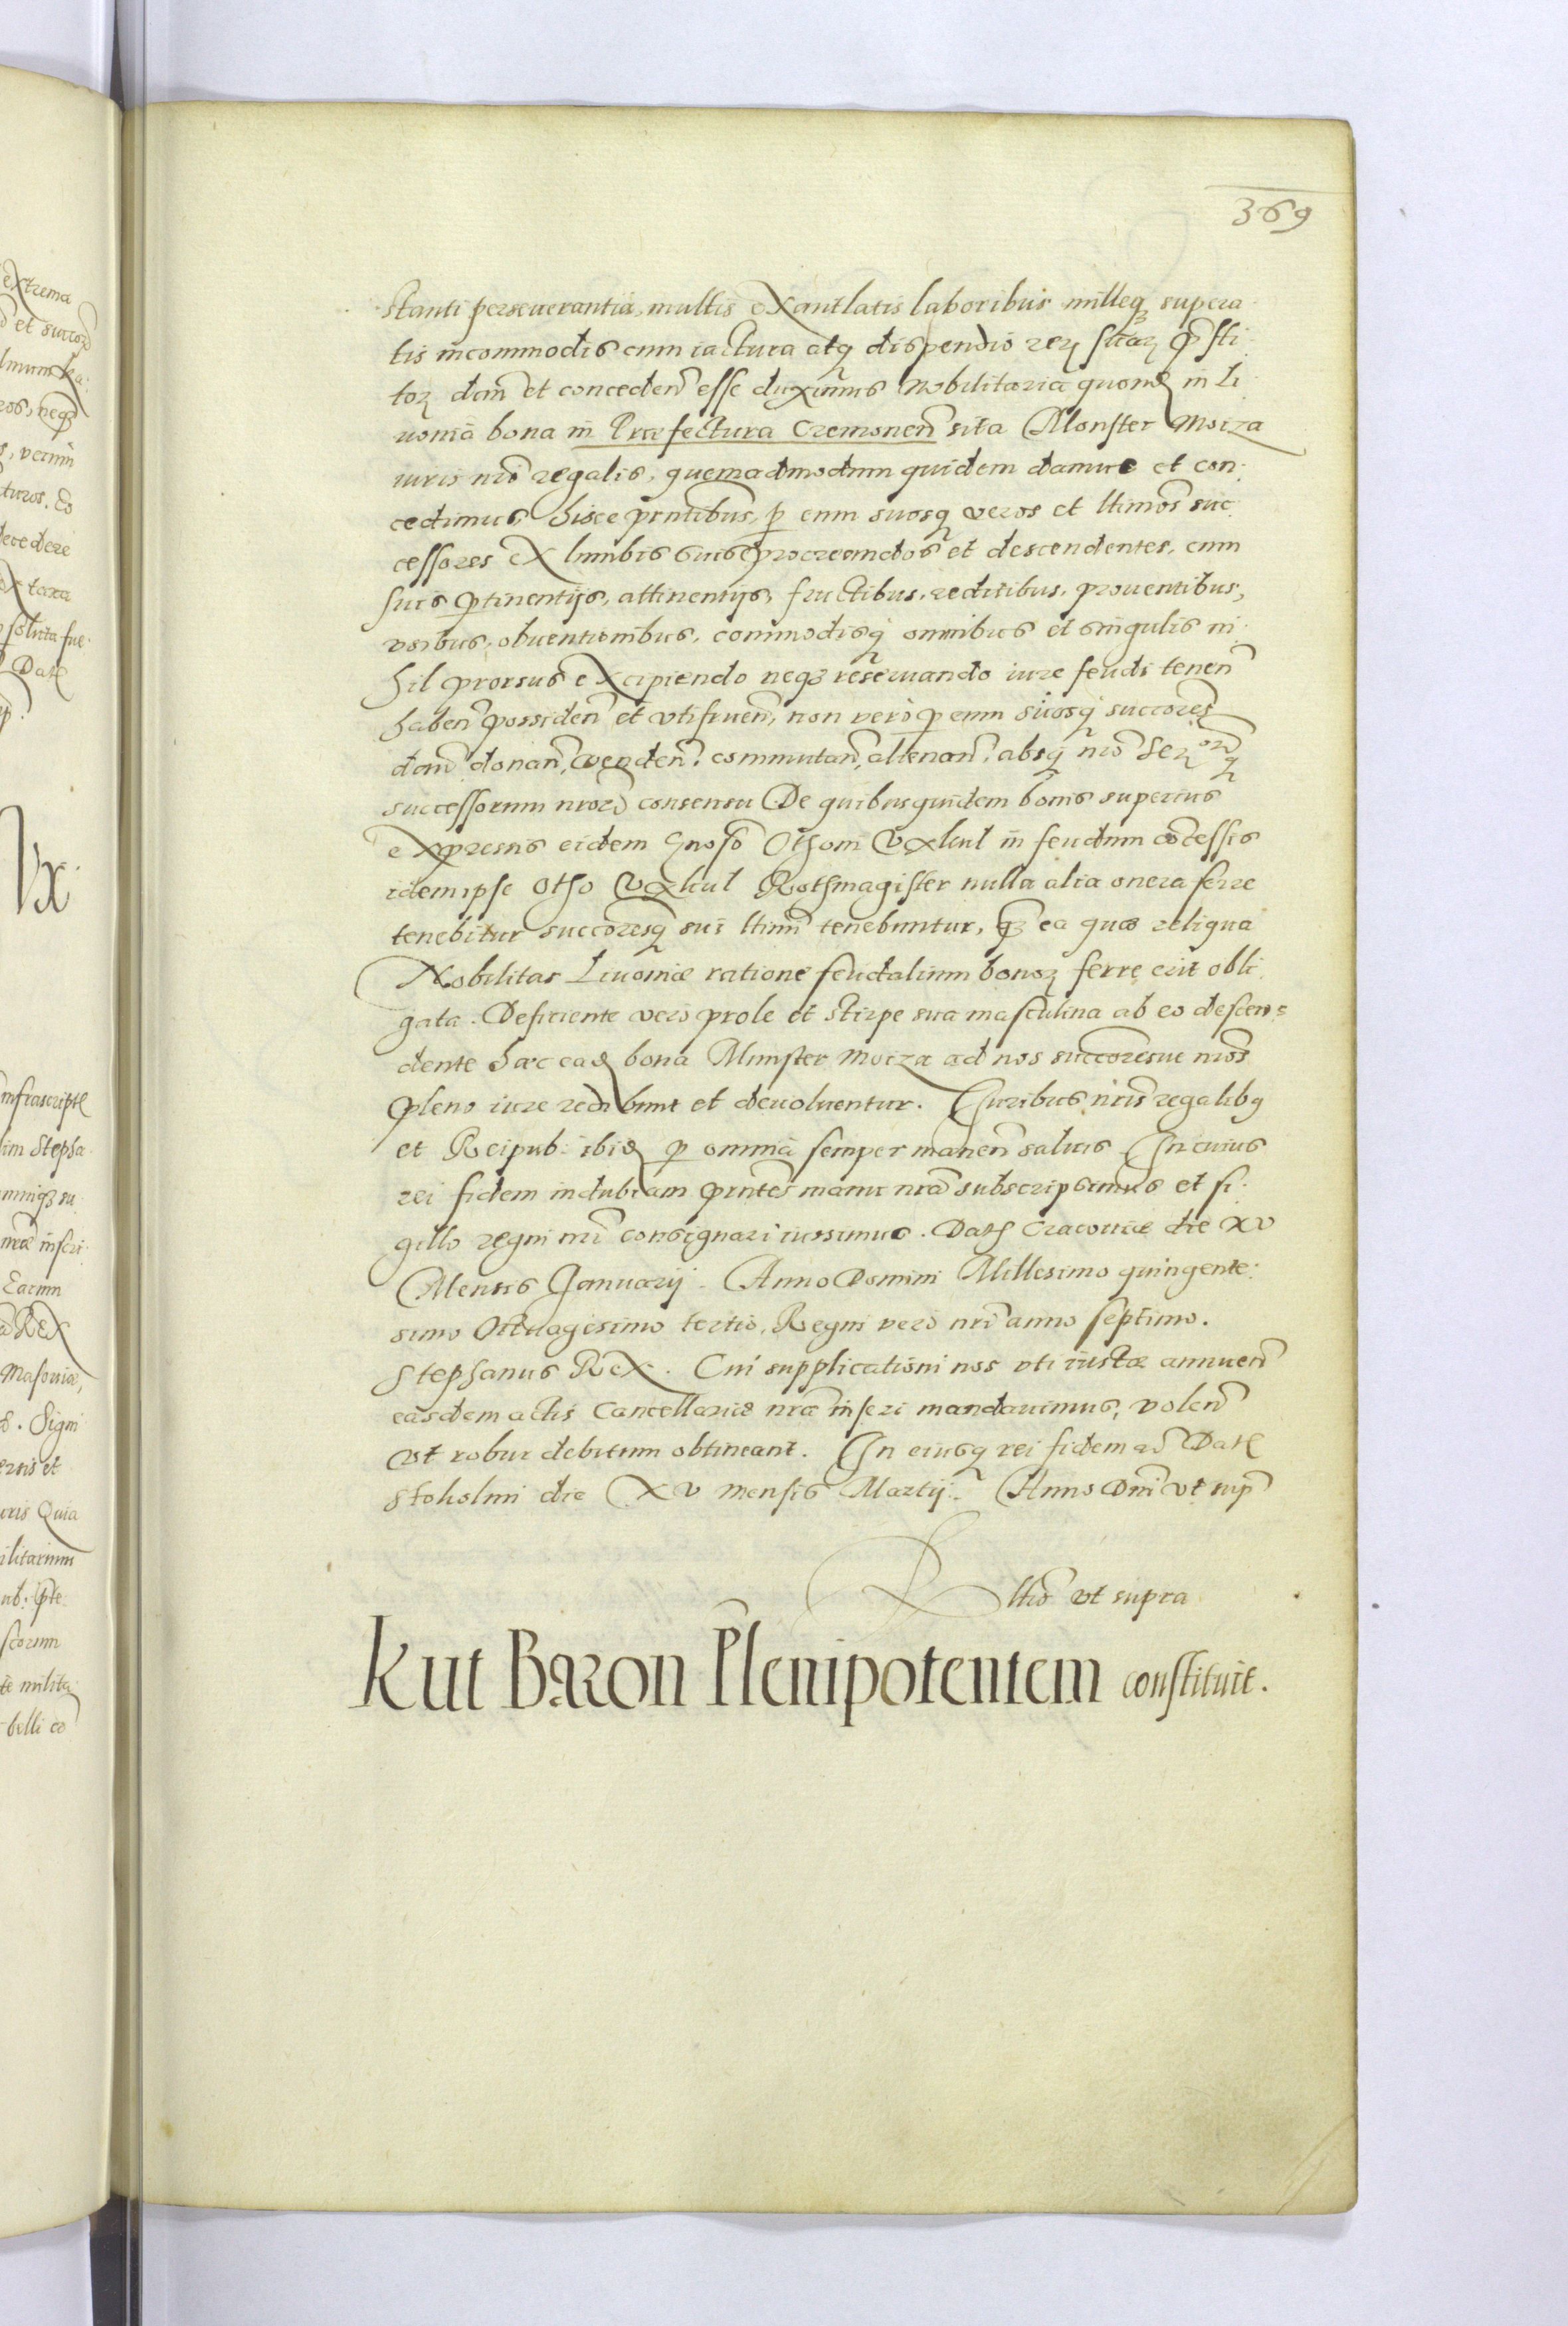 369
stanti perseuerantia, multis exantlatis laboribus milleq₃ supera
tis incommodis cum iactura atq₃ dispendio rerꝝ suarꝝ p̄sti
torꝝ dan̄ et conceden̄ esse duximus Nobilitaria quondꝫ in Li
uonia bona in Præfectura Cremonen̄ sita Monster Moiza
iuris nr̄o regalis, quemadmodum quidem damus et con
cedimus hisce pn̄tibus, ꝑ eum suosq₃ veros et ltimos suc
cessores ex lumbis suis procreandos et descendentes, cum
suis ꝑtinentijs, attinentijs, fructibus, reditibus, prouentibus,
vsibus, obuentionibus, commodisq₃ omnibus et singulis ni
hil prorsus excipiendo neq₃ reseruando iure feudi tenen̄
haben̄ possiden̄ et vtifruen̄, non vero ꝑ eum suosq₃ succores
dan̄ donan̄, venden̄, commutan̄, alienan̄, absq₃ nr̄o
successorum nror̄ consensu De quibusquidem bonis superius
expressis eidem Gnoso Othoni Vxkul in feudum cōcessis
idem ipse Otho Vxkul Rothmagister nulla alia onera ferre
tenebitur succoresq₃ sui ltimi tenebuntur, q₃ ea quæ reliqua
Nobilitas Liuoniæ ratione feudalium bonorꝝ ferre erit obli
gata. Deficiente vero prole et stirpe sua masculina ab eo descen=
dente hæc eadꝫ bona Munster Moiza ad nos succoresue nros
pleno iure redibunt et deuoluentur. Iuribus nris regalibꝰ
et Reipub: ibidꝫ ꝑ omnia semper manen̄ saluis In cuius
rei fidem indubiam pn̄tes manu nrā subscripsimus et si
gillo regni nrī consignari iussimus. Datꝫ Cracouiæ die XV
Mensis Januarij. Anno Domini Millesimo quingente
simo Octuagesimo tertio, Regni vero nrī anno septimo.
Stephanus Rex. Cui supplicationi nos vti iustæ annuen̄
easdem actis Cancellariæ nræ inseri mandauimus, volen̄
vt robur debitum obtineant. In eiusq₃ rei fidem &c Datꝫ
Stoholmi die XV mensis Martij. Anno Dnī vt sup̄
Rltio vt supra
Kut Baron Plenipotentem constituit.